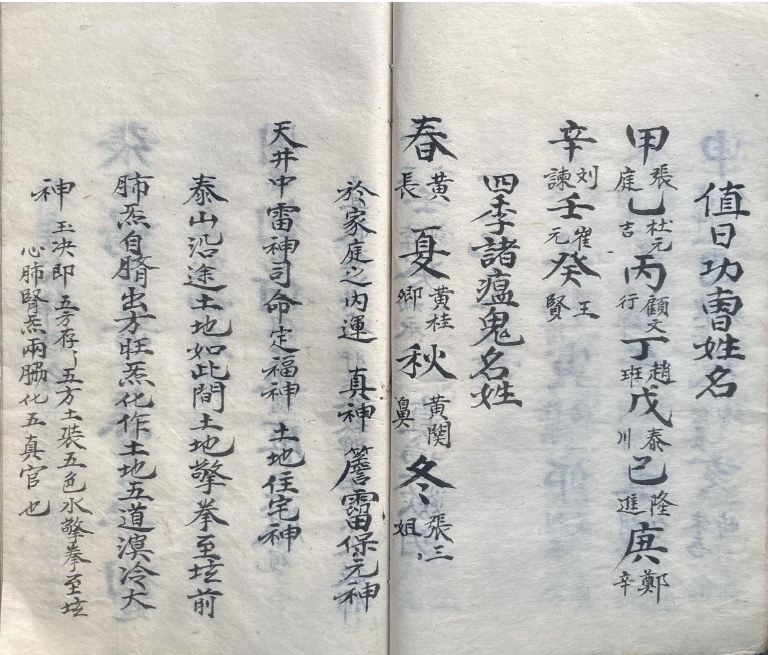 值日功曹姓名
甲張庭乙杜元吉丙顧文行丁趙班戊泰川己隆進庚鄭辛
辛刘諫壬崔元癸王賢
四季諸瘟鬼名姓
春黄長夏黄桂卿秋黄関鼻冬張三姐
於家庭之内運 真神簷霤保元神
天井中雷神司命定福神 土地住宅神
泰山沿途土地如此間土地擎拳至坛前
肺炁自臍出方旺炁化作土地五道溟冷大
神玉决即五方存五方土裝五色水擎拳至坛
心肺腎炁兩脇化五真官也